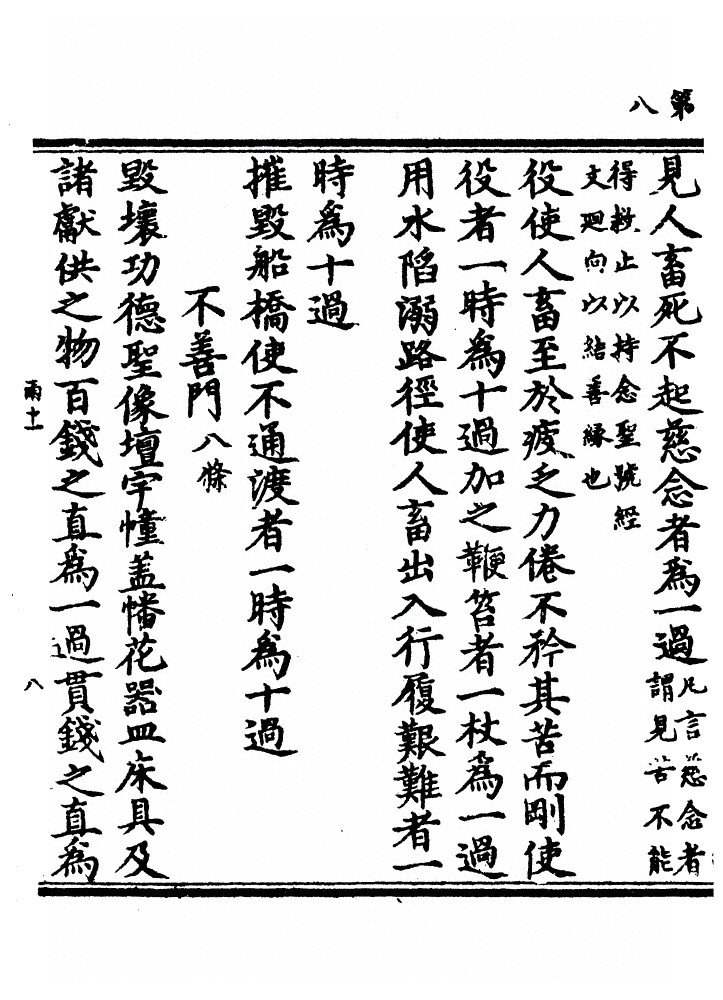 第
八
見人畜死不起慈念者為一過凡言慈念者
謂見苦不能
得救止以持念聖號經
文廻向以結善緣也
役使人畜至於疲乏力倦不矜其苦而剛使
役者一時為十過加之鞭笞者一杖為一過
用水陷溺路徑使人畜出入行履艱難者一
時為十過
摧毀船橋使不通渡者一時為十過
不善門八條
毀壞功德聖像壇宇幢蓋幡花器皿床具及
諸獻供之物百錢之直為一過貫錢之直為
雨十一
八